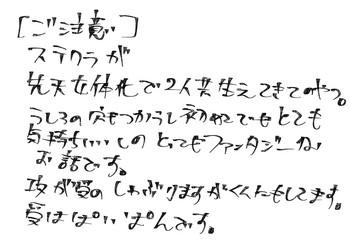 [ご注意]
ステクラが
先天女体化で2人共生えてきてのやつ。
うしろの穴もつかうし初めてでもとても
気持ちいいしの とってもファンタジーな
お話です。
攻が受の しゃぶりますがくんにもします。
受はぱいぱんです。